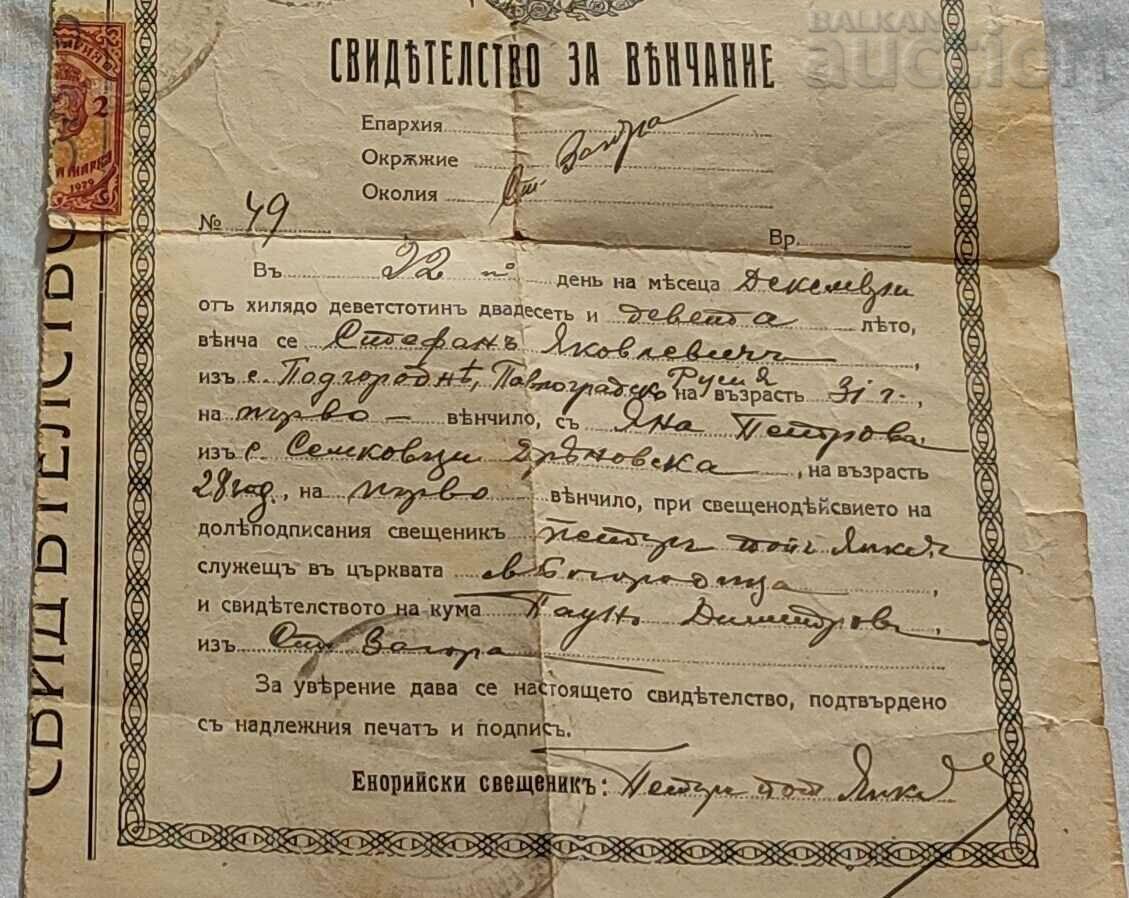 BALKAN
auction
СВИДѢТЕЛСТВО ЗА ВѢНЧАНИЕ
Епархия
Окрѫжие
Околия Ст. Загора
№ 49 Вр.
2
МАРКА
1929
Въ 22 й день на мѣсеца Декември
отъ хилядо деветстотин двадесеть и девета лѣто,
вѣнча се Стефанъ Яковлевичъ,
изъ с. Подгороднѣ, Павлоградско Русия на възрасть 31 г.,
на първо вѣнчило, съ Яна Петрова
изъ с. Семковци Дрѣновска, на възрасть
28 год., на първо вѣнчило, при свещенодѣйсвието на
долѣподписания свещеникъ Петъръ поп Янкол
служещъ въ църквата св Богородица,
и свидѣтелството на кума Паунъ Димитровъ,
изъ Ст Загора
За увѣрение дава се настоящето свидѣтелство, подтвърдено
съ надлежния печатъ и подписъ.
Енорийски свещеникъ: Петъръ поп
СВИДѢТЕЛСТВО